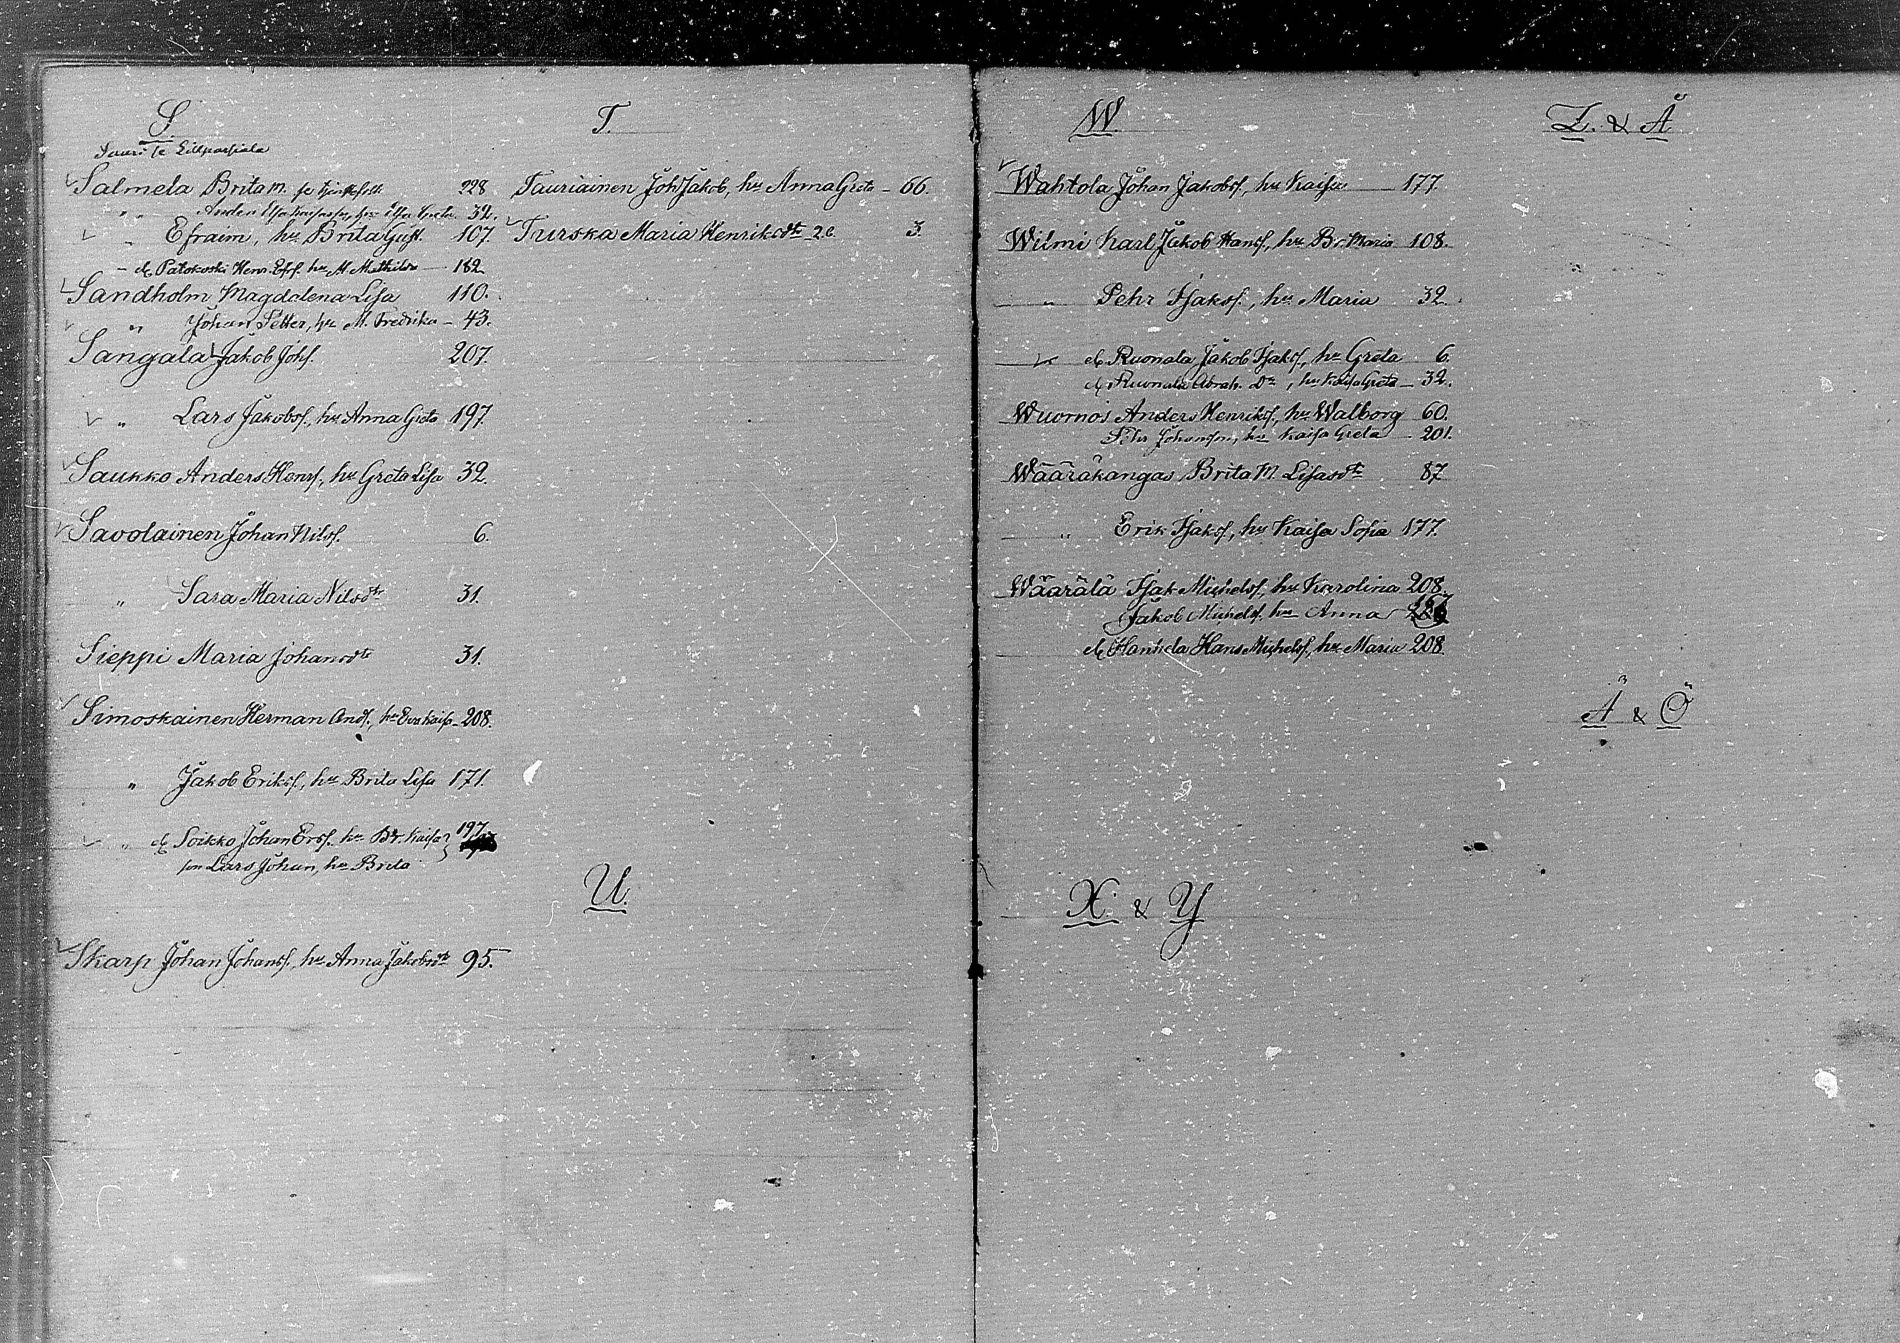 S.
Suuri se Lillparpiala
Salmela Brita M. se 228
" " Anders Elsa Kaisasson, hu Elsa Greta 32.
" Efraim, hu Brita Gust. 107.
" & Patokoski Henr. Efrs. hu M. Mathilda 182
Sandholm Magdalena Lisa 110.
" Johan Petter, hu M. Fredrika 43.
Sangala Jakob Johs. 207.
" Lars Jakobss., hu Anna Greta 197.
Saukko Anders Henrs., hu Greta Lisa 32.
Savolainen Johan Nilss. 6.
" Sara Maria Nilsdtr 31.
Sieppi Maria Johansdtr 31.
Simoskainen Herman Ands., hu Eva Kaisa 208.
" Jakob Erikss., hu Brita Lisa 171.
" & Soikko Johan Erss. hu Br. Kaisa 197
son Lars Johan, hu Brita
Skarp Johan Johanss., hu Anna Jakobsdtr 95.
T.
Tauriainen Joh Jakob, hu Anna Greta 66.
Turska Maria Henriksdtr 3.
U.
W.
Wahtola Johan Jakobss., hu Kaisa 177.
Wilmi Karl Jakob Hanss., hu Br. Maria 108.
" Pehr Isakss., hu Maria 32.
" & Ruonala Jakob Isakss., hu Greta 6.
& Ruonala Abrah. Do, hu Kaisa Greta 32.
Wuornos Anders Henrikss., hu Walborg 60.
Pehr Johansson, hu Kaisa Greta 201.
Wääräkangas Brita M. Lisasdtr 87.
" Erik Isakss., hu Kaisa Sofia 177.
Wäärälä Isak Michelss., hu Karolina 208.
Jakob Michelss. hu Anna
& Hans Michelss., hu Maria 208.
X. & Y
Z. & Å
Ä & Ö